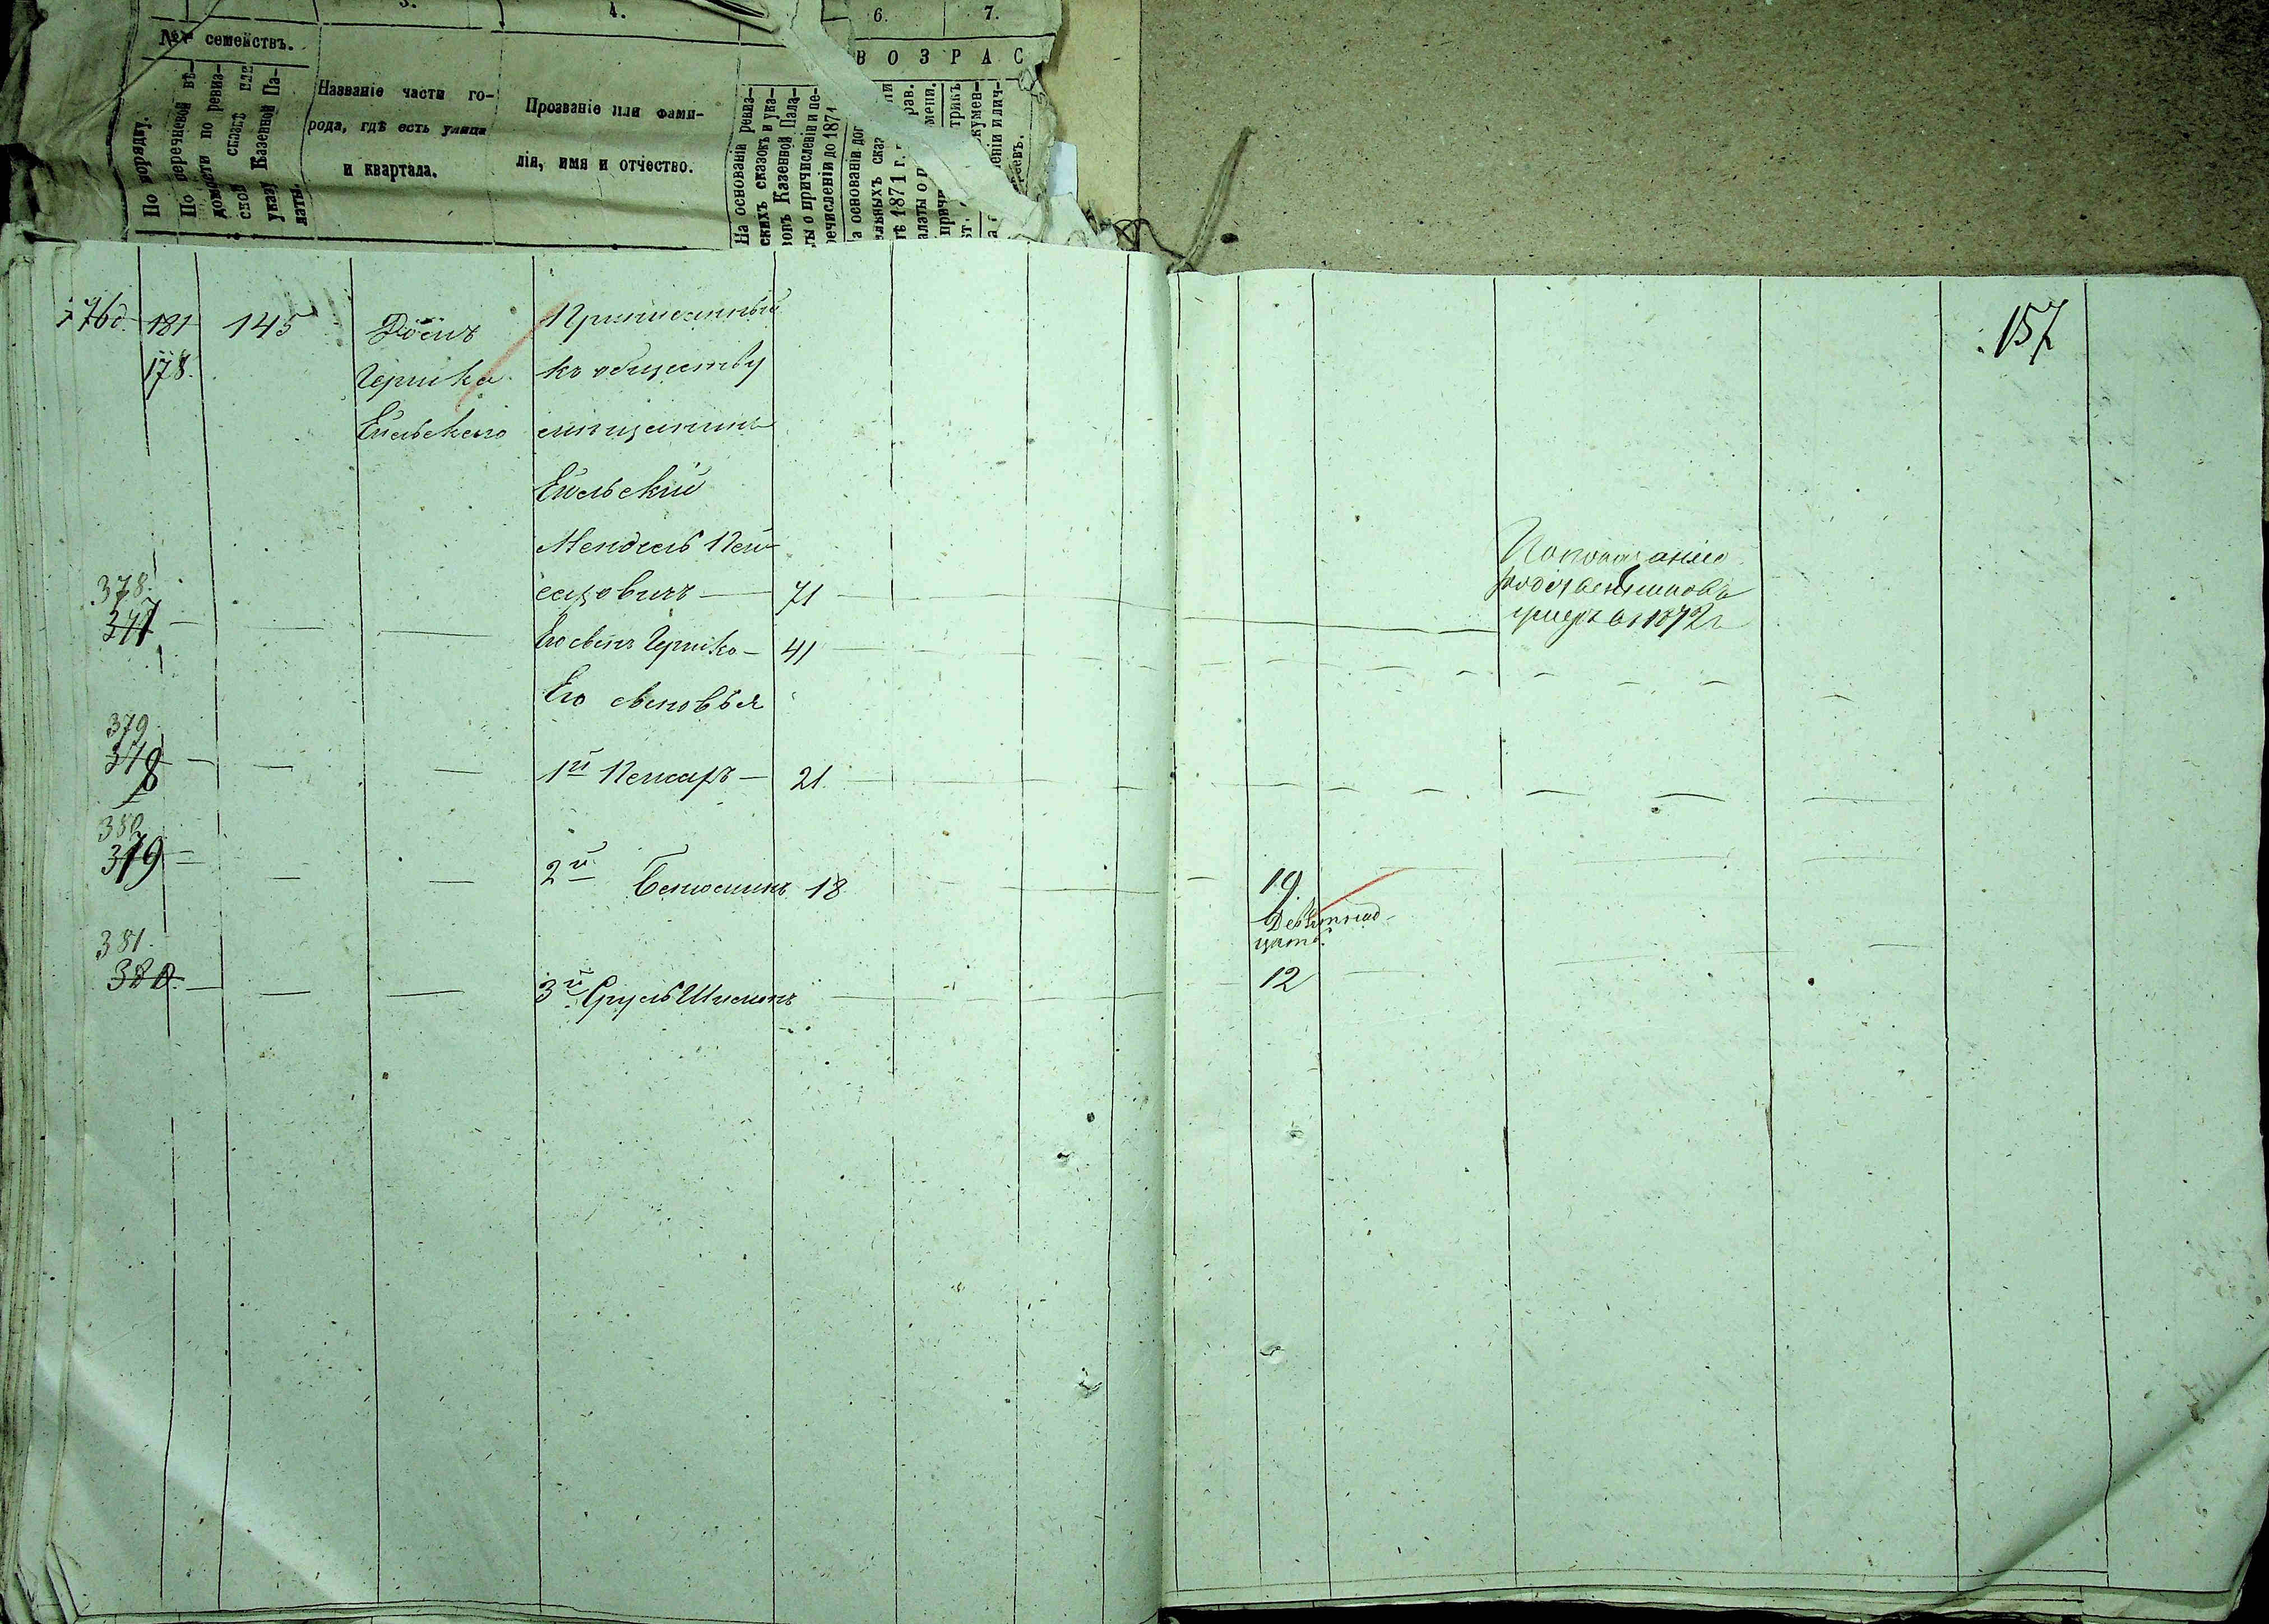 3.
4.
6.
7.
№№ семействъ.
В О З Р А С
По порядку.
По перечневой вѣ-
домости по ревиз-
ской сказкѣ или
указу Казенной Па-
латы.
Названіе части го-
рода, гдѣ есть улица
и квартала.
Прозваніе или фами-
лія, имя и отчество.
На основаніи ревиз-
скихъ сказокъ и ука-
зовъ Казенной Пала-
ты о причисленіи и пе-
речисленіи до 1871
а основаніи доп
ельныхъ сказ
тѣ 1871 г.
алаты о п
рав.
мени.
трикъ
кумен-
еніи или ч-
181
178.
145
Домъ
Гершка
Ейельскаго
Приписанный
къ обществу
мѣщанинъ
Ейельскій
Мендель Пей-
71
378.
Его сынъ Гершко
41
Его сыновья
379.
1й Пейсахъ
21
380
379
2й Беньоминъ
18
381.
380.
3й Сруль Шлиома
157
По показанію
родственниковъ
умеръ въ 1872 г
19
Девятнад-
цать.
12